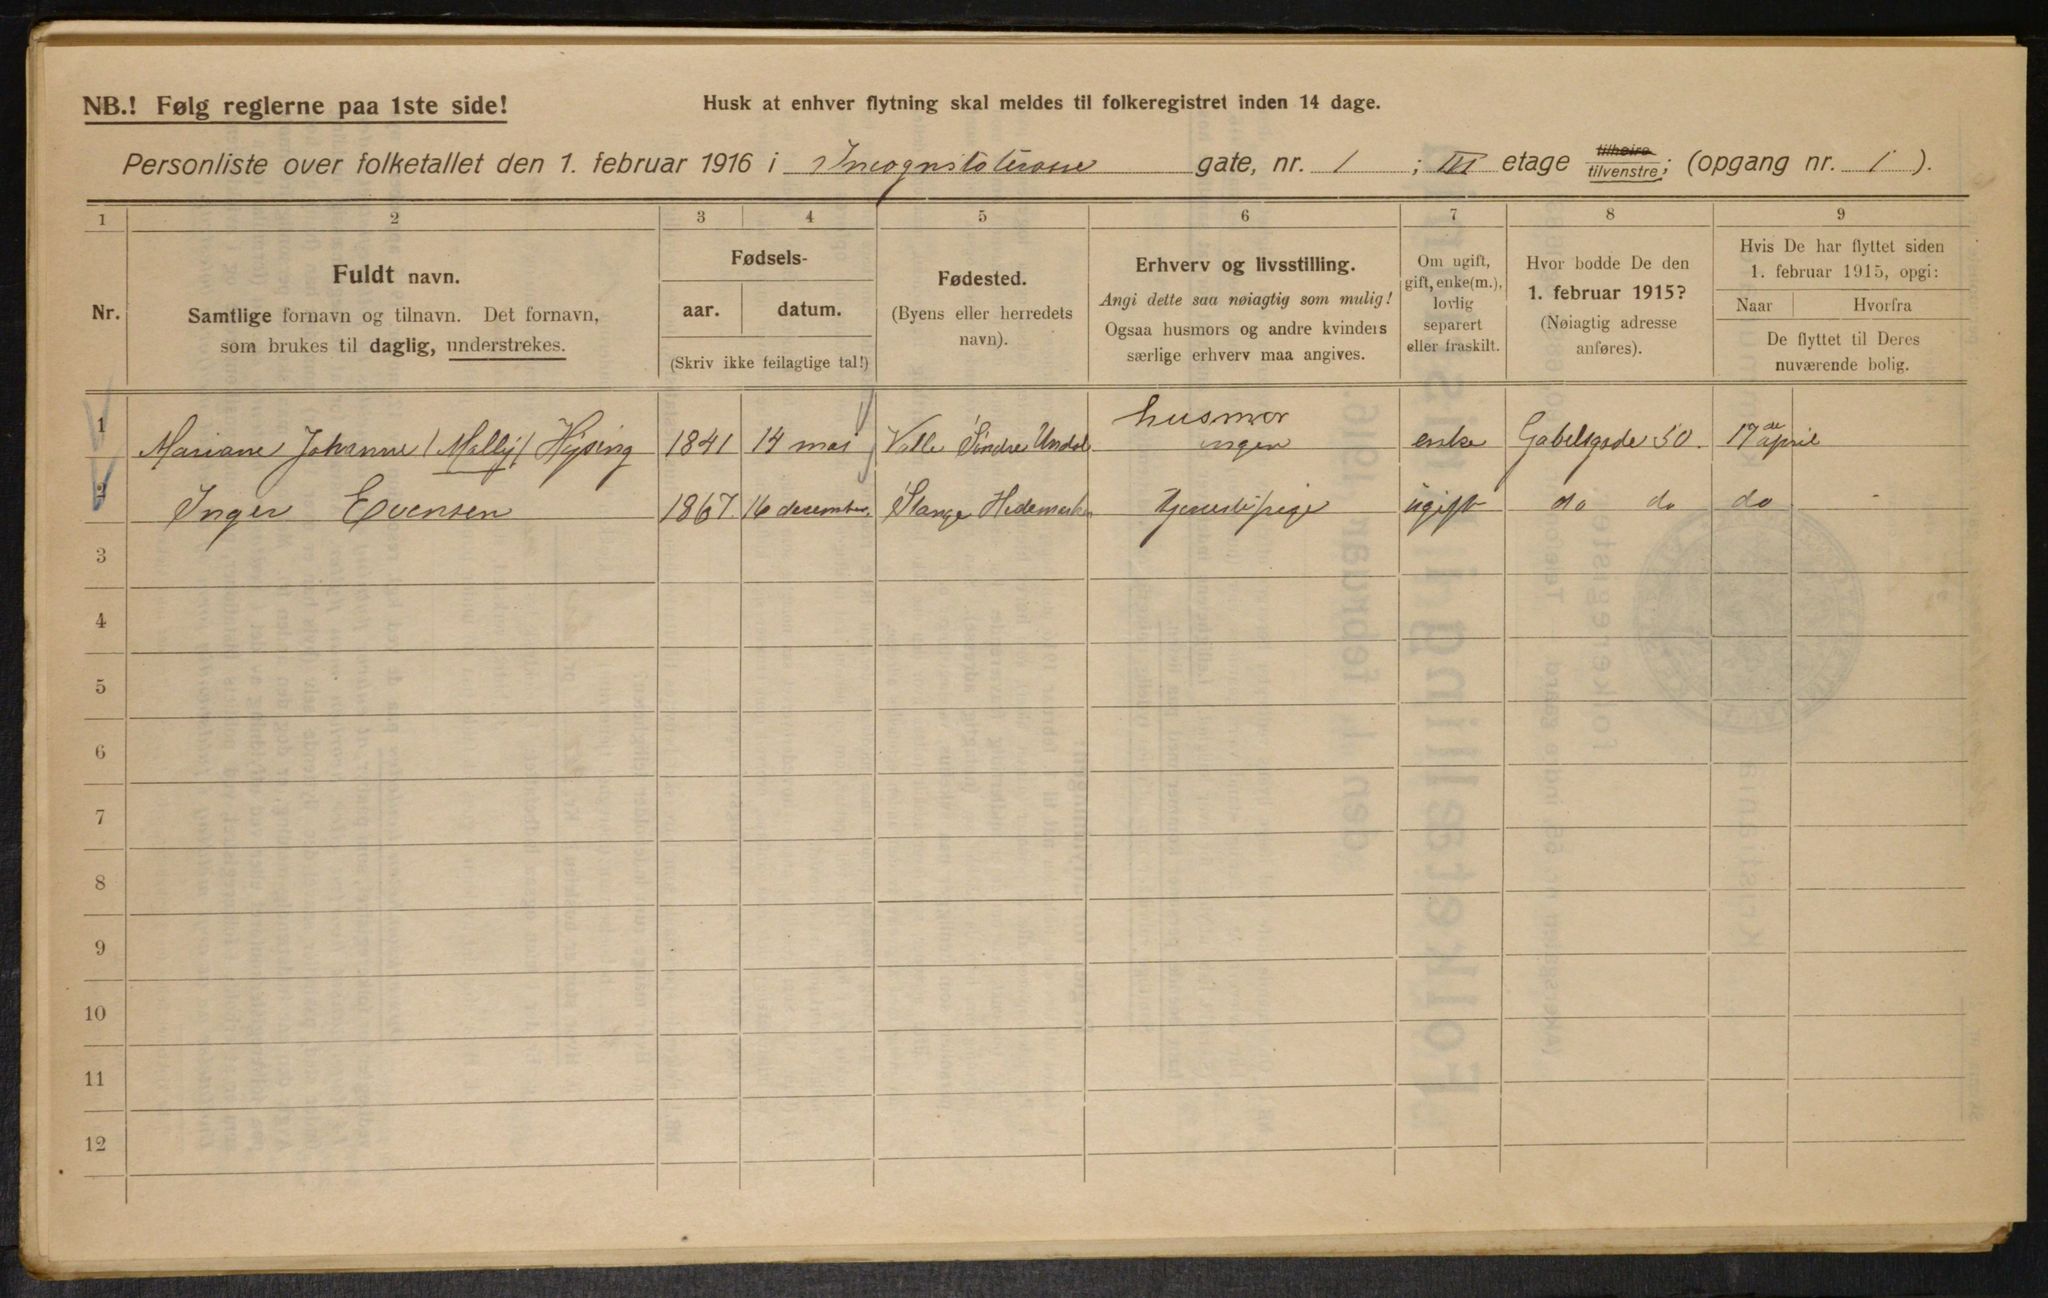 NB.! Følg reglerne paa 1ste side!
Husk at enhver flytning skal meldes til folkeregistret inden 14 dage.
Personliste over folketallet den 1. februar 1916 i Incognitoterasse gate, nr. 1 ; III etage tilheire tilvenstre; (opgang nr. 1 ).
1 2 3 4 5 6 7 8 9
Nr.
Fuldt navn.
Samtlige fornavn og tilnavn. Det fornavn,
som brukes til daglig, understrekes.
Fødsels-
aar. datum.
(Skriv ikke feilagtige tal!)
Fødested.
(Byens eller herredets
navn).
Erhverv og livsstilling.
Angi dette saa nøiagtig som mulig!
Ogsaa husmors og andre kvinders
særlige erhverv maa angives.
Om ugift,
gift, enke(m.),
lovlig
separert
eller fraskilt.
Hvor bodde De den
1. februar 1915?
(Nøiagtig adresse
anføres).
Hvis De har flyttet siden
1. februar 1915, opgi:
Naar Hvorfra
De flyttet til Deres
nuværende bolig.
husmor
1 Mariane Johanne (Mally) Hysing 1841 14 mai Valle Söndre Undal ingen enke Gabelsgade 50. 17de april
2 Inger Evensen 1867. 16 december. Stange Hedemarken tjenestepige ugift do do do -
3
4
5
6
7
8
9
10
11
12